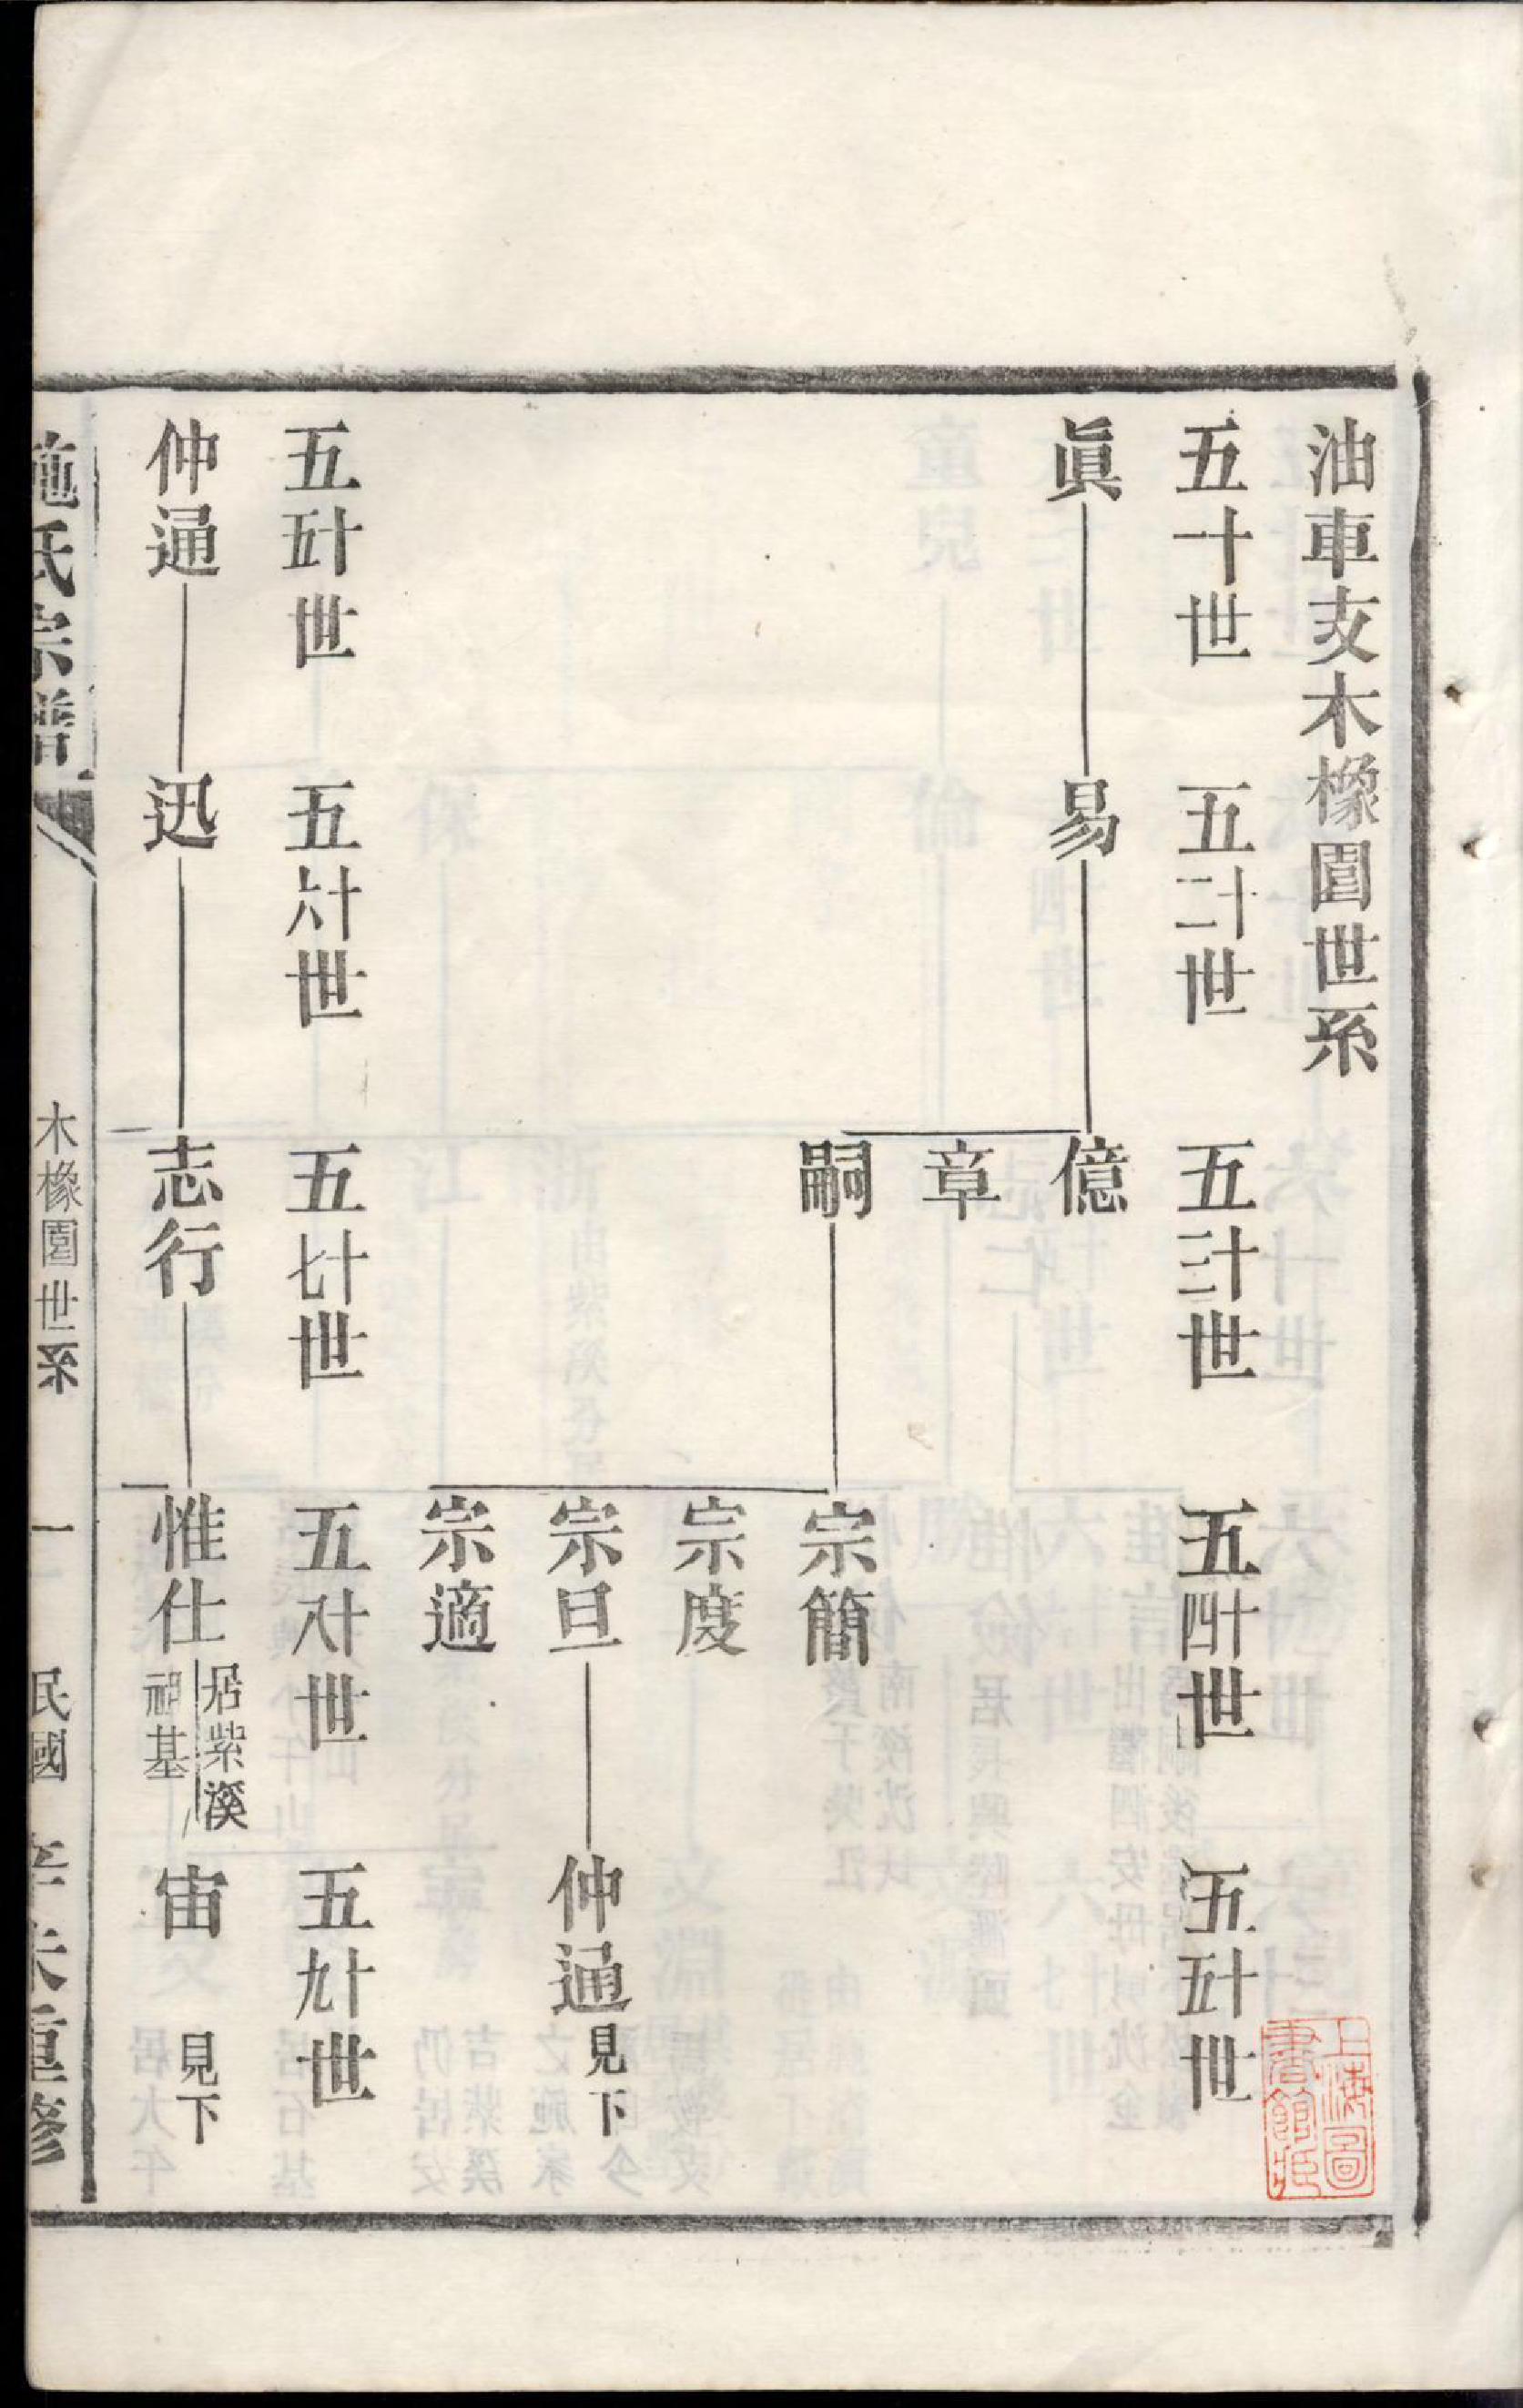 油車支木橡園世系
五十一世　五十二世　五十三世　五十四世　五十五世
眞　易　億
章
嗣　宗簡
宗度
宗旦　仲通見下
宗適
五十五世　五十六世　五十七世　五十八世　五十九世
仲通　迅　志行　惟仕　居紫溪祖基　宙　見下
施氏宗譜　木橡園世系　一　民國辛未重修
上海圖書館藏